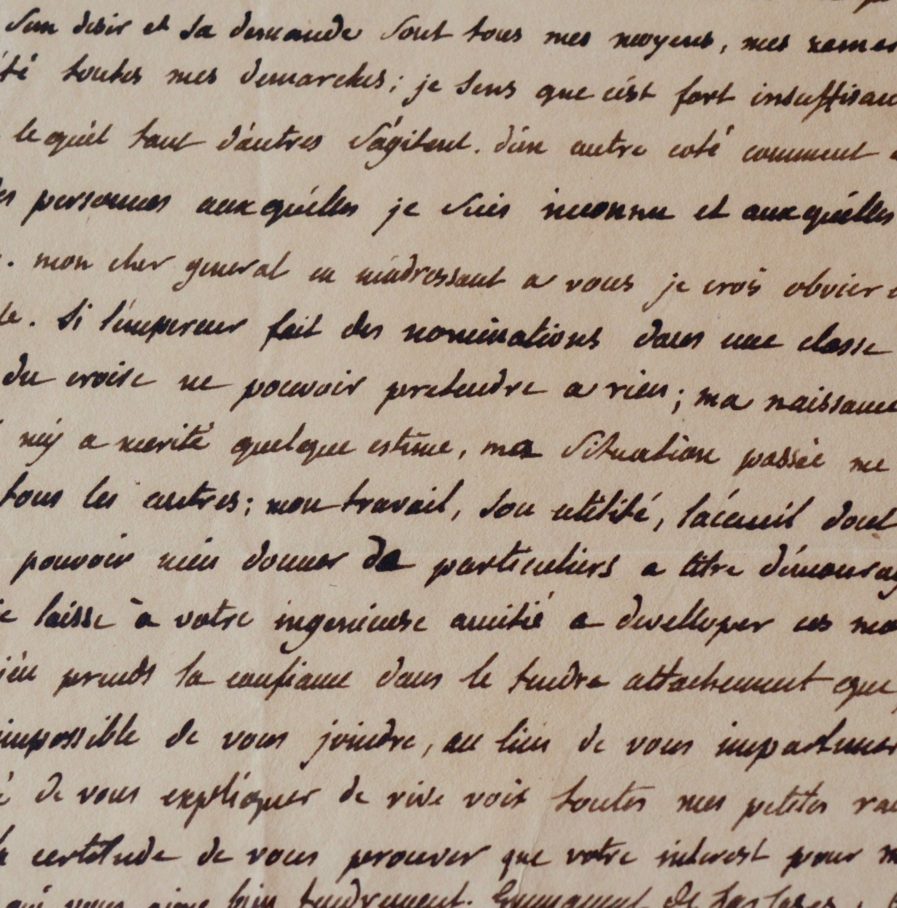 son desir et sa demande sont tous mes moyens, mes remer
été toutes mes demarches; je sens que c'ést fort insuffisan
le quél tant d'áutres s'ágitent. d'ún autre coté comment
les personnes aux quélles je suis inconnu et aux quélles
. mon cher general en m'ádressant a vous je crois obvier
te. Si l'émpereur fait des nominations dans une classe
du croire ne pouvoir pretendre a rien; ma naissance
m'y a merité quelque estime, ma situation passée me
tous les autres; mon travail, son utilité, l'áceuil dont
pouvoir m'én donner de particuliers a titre d'éncourag
je laisse à votre ingenieuse amitié a developer ces mo
j'én prends la confiance dans le tendre attachement que
impossible de vous joindre, au lieu de vous importuner
é de vous expliquer de vive voix toutes mes petites ra
la certitude de vous prouver que votre interest pour m
qui vous aime bien tendrement.